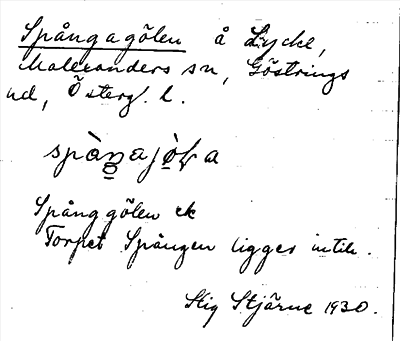 Spångagölen å Lycke,
Malexanders sn, Göstrings
hd, Österg. l.
spànajò̱ła
Spånggölen ek
Torpet Spången ligger intill.
Stig Stjärne 1930.